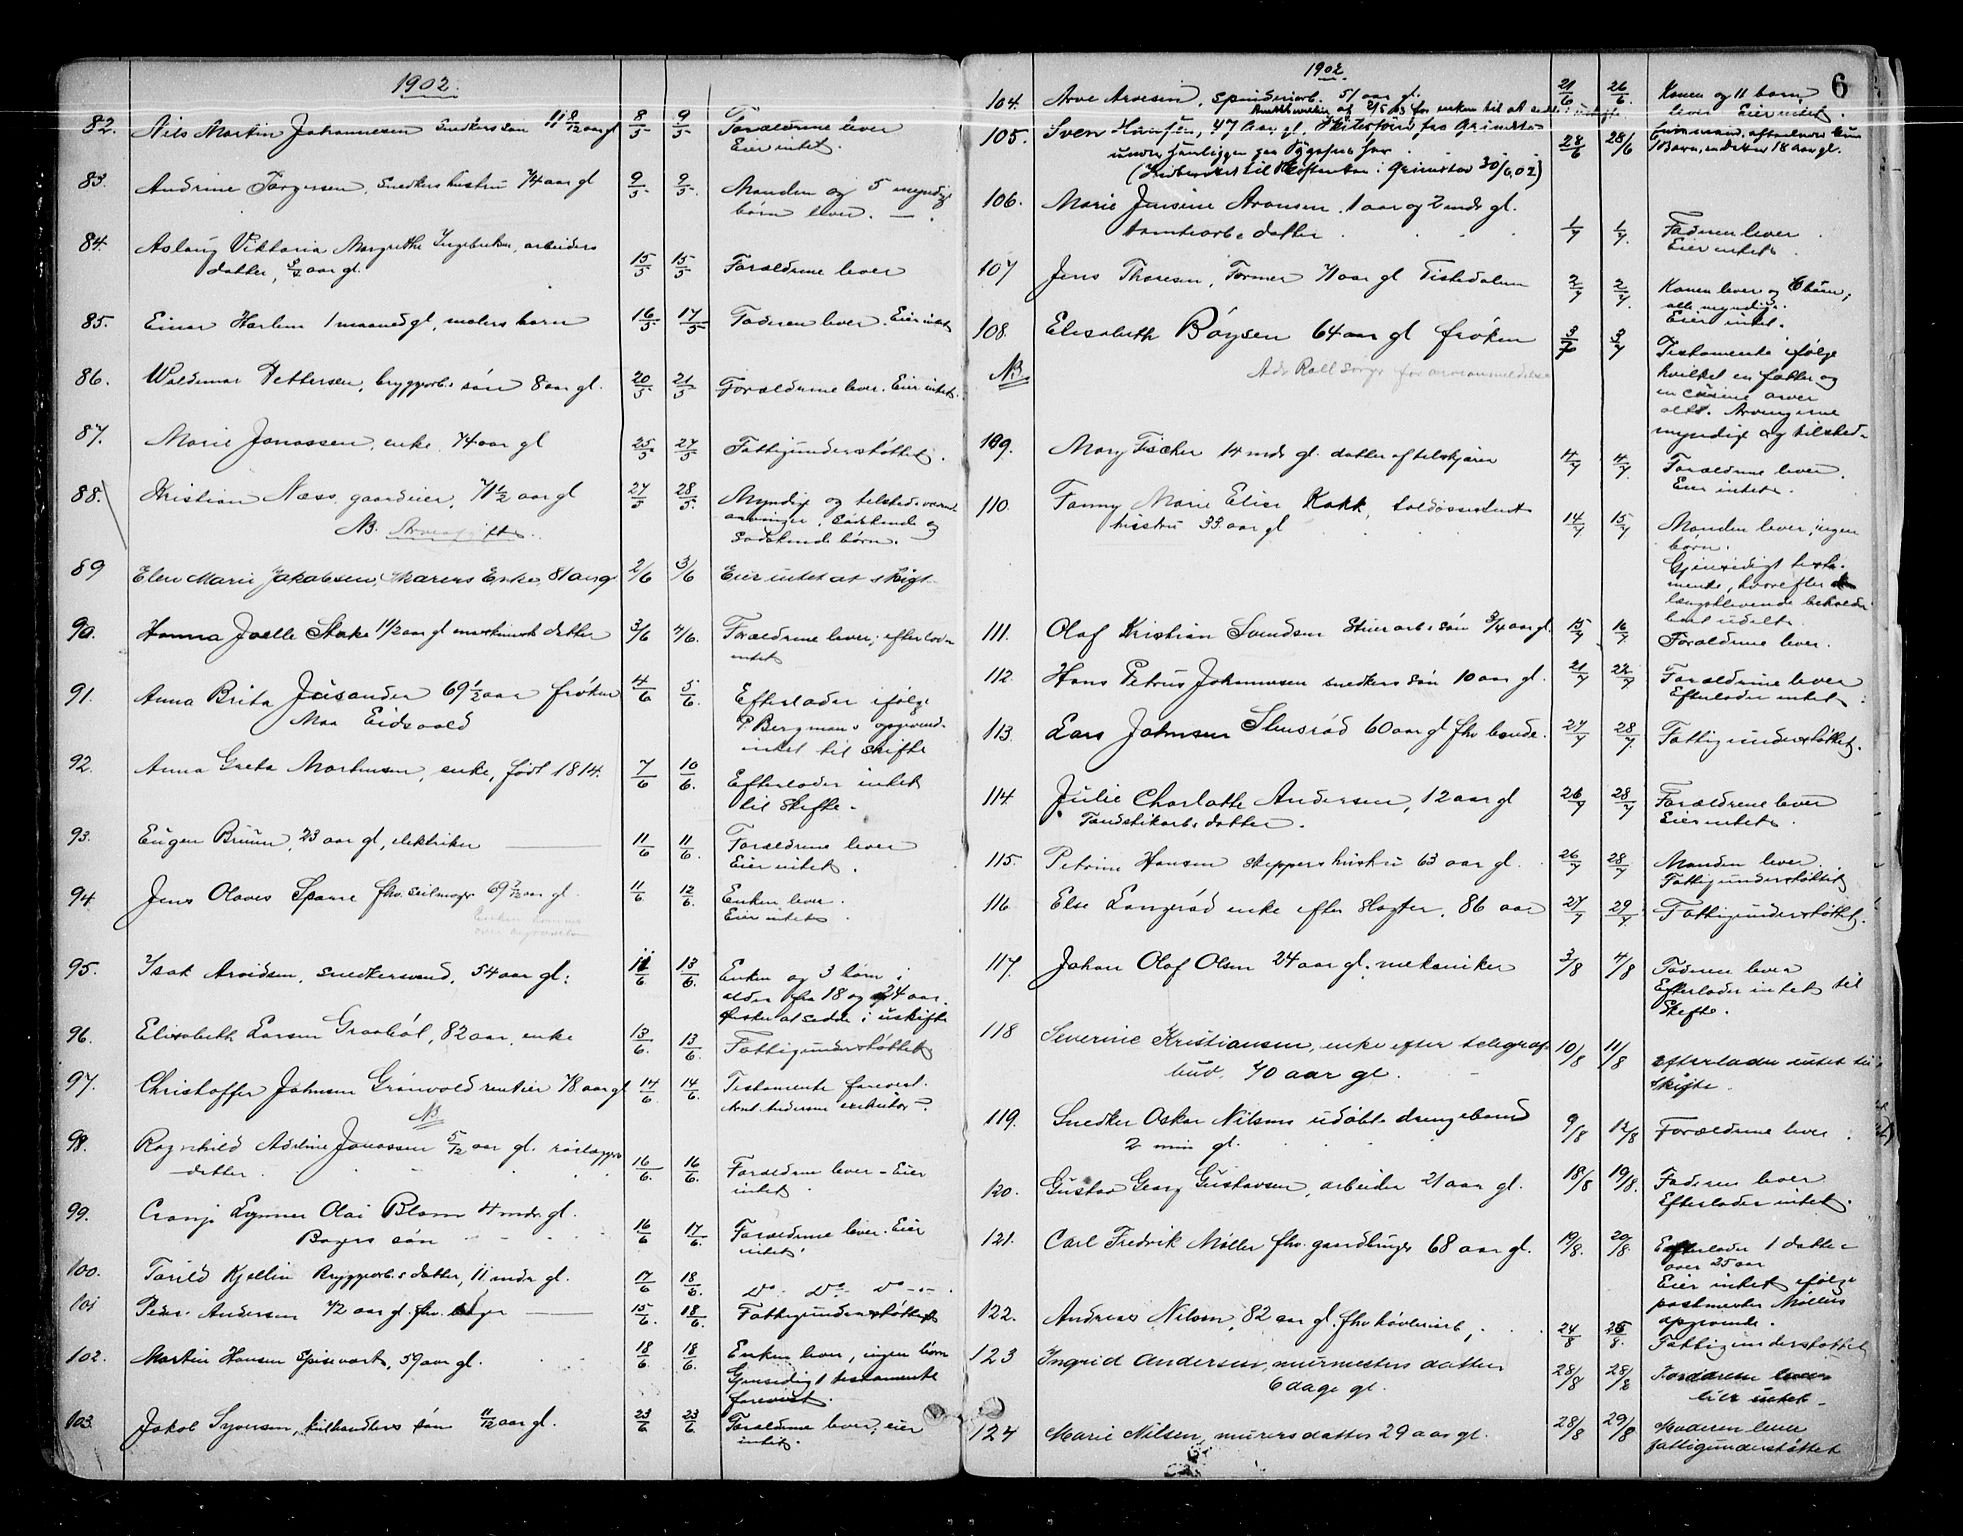 1902.
82. Nils Martin Johannesen snedkers søn 11 8/12 aar gl 8/5 9/5 Forældrene lever
Eier intet.
83. Andrine Torgersen, snedkers hustru 74 aar gl 9/5 9/5. Manden og 5 myndige
børn lever. —
84. Aslaug Viktoria Margrethe Ingebretsen, arbeiders
datter, 3/4 aar gl. 15/5 15/5 Forældrene lever
85. Einar Harlem 1 maaned gl, malers barn 16/5 17/5 Faderen lever. Eier intet
86. Waldemar Pettersen, bryggearb.s søn 8 aar gl. 20/5 21/5 Forældrene lever. Eier intet.
87. Marie Jonassen, enke, 74 aar gl 25/5 27/5 Fattigunderstøttet.
88. Kristian Næss, gaardeier, 71 1/2 aar gl 27/5 28/5. Myndige og tilstedeværende
arvinger, södskende og
NB. Arveafgift
södskendebörn.
89 Elen Marie Jakobsen, Enke, 81 aar g 2/6 3/6 Eier intet at skift
90. Hanna Joelle Stake 1 1/2 aar gl maskinists datter 3/6 4/6. Forældrene lever; efterlader
intet
91. Anna Brita 69 1/2 aar frøken 4/6 5/6. Efterlader ifølge
Moa Eidsvold
P. Bergmans opgivende
intet til skifte
92. Anna Greta Martinsen, enke, født 1814. 7/6 10/6. Efterlader intet
til skifte.
93. Eugen Bruun, 23 aar gl, elektriker 11/6 11/6. Forældrene lever
Eier intet.
94. Jens Olaves Spone fhv. seilmager 69 7/12 aar gl. 11/6 12/6. Enken lever.
Eier intet.
95. Isak Arvidsen, snedkersvend, 54 aar gl: 11/6 13/6. Enken og 3 børn i
alder fra 18 og 24 aar.
Ønsker at sidde i uskifte
96. Elisabeth Larsen Graabøl, 82 aar, enke 13/6. 13/6. Fattigunderstøttet
97. Christoffer Johnsen Grönvold rentier 78 aar gl 14/6. 14/6. Testamente forevist.
NB
Arnt Andersen exekutor
98. Ragnhild Adeline Jonassen 5/12 aar gl.
datter. 16/6. 16/6. Forældrene lever – Eier
intet.
99. Cranj Lynner Olai Blom 4 mdr. gl.
Bagers søn 16/6 17/6. Forældrene lever. Eier
intet.
100. Torild Kjellin Bryggearb.s datter, 11 mdr gl. 17/6 18/6. Do Do Do
101 Peder Andersen 72 aar gl. fhv. 15/6. 18/6. Fattigunderstøttet
102. Martin Hansen Spisevært, 57 aar gl. 18/6. 18/6. Enken lever, ingen børn
Gjensidigt testamente
forevist.
103. Jakob Syversen, kulhandlers søn 11/12 aar gl. 23/6 23/6. Forældrene lever, eier
intet.
6
1902
104. Arve Arvesen, spinderiarb. 51 aar gl. 21/6 26/6. Konen og 11 børn
lever Eier intet.
105. Sven Hansen, 47 Aar gl, fra Grimstad 28/6 28/6
18 aar gl.
under Henliggen paa Sygehus her
(Indberettet til Skifteretten i Grimstad 30/6 02)
106. Marie Jensine Aronsen, 1 aar og 2 mdr gl.
tomtearb.s datter. 1/7 1/7. Faderen lever
Eier intet
107 Jens Thoresen, Former 71 aar gl Tistedalen 2/7 2/7. Konen lever og børn;
alle myndige.
Eier intet.
108. Elisabeth Böysen 64 aar gl frøken 3/7 3/7 Testamente ifølge
NB. hvilket en fatter og
Ads Roll sørger for arveanmeldelse
en cusine arver
alt. Arvingerne
myndige og tilsted-
109. Mary Fischer 14 mdr gl. datter af 4/7 4/7. Forældrene lever.
Eier intet.
110. Fanny Marie Elise Kokk, toldassistent
hustru 33 aar gl 14/7 15/7 Manden lever, ingen
børn.
Gjensidigt testa-
mente, hvorefter
længstlevende beholder
boet udelt.
111. Olaf Kristian Svendsen søn 3/4 aar gl. 15/7 16/7. Forældrene lever.
112. Hans Petrus Johannesen snedkers søn 10 aar gl. 21/7 22/7 Forældrene lever
Efterlader intet.
113. Lars Johnsen Stensrød 60 aar gl fhv bonde. 27/7 28/7 Fattigunderstøttet.
114 Julie Charlotte Andersen, 12 aar gl 26/7 28/7 Forældrene lever
Tændstikarb.s datter.
Eier intet.
115. Petrine Hansen skippers hustru 63 aar gl. 26/7 28/7 Manden lever.
Fattigunderstøttet
116 Else Langerød enke efter slagter, 86 aar 27/7 29/7. Fattigunderstøttet.
117. Johan Olaf Olsen 24 aar gl. mekaniker 3/8 4/8 Faderen lever
Efterlader intet til
Skifte.
118 Severine Kristiansen, enke efter telegraf-
bud. 70 aar gl. 10/8 11/8 efterlader intet til
skifte.
119. Snedker Oskar Nilsens udøbte drengebarn
2 min gl. 9/8 12/8 Forældrene lever.
120. Gustav Georg Gustavsen, arbeider 21 aar gl. 18/8 19/8. Faderen lever
Efterlader intet.
121. Carl Fredrik Møller fhv. gaardbruger 68 aar gl. 19/8. 20/8 Efterlader 1 datter
over 25 aar
Eier intet ifølge
postmester Møllers
opgivende.
122. Andreas Nilsen, 82 aar gl. fhv høvleriarb, 24/8 25/8. Fattigunderstøttet
123 Ingrid Andersen, murmesters datter
6 dage gl. 28/8 28/8 Forældrene lever
Eier intet
124 Marie Nilsen, murers datter 29 aar gl. 28/8 29/8 Moderen lever
fattigunderstøttet